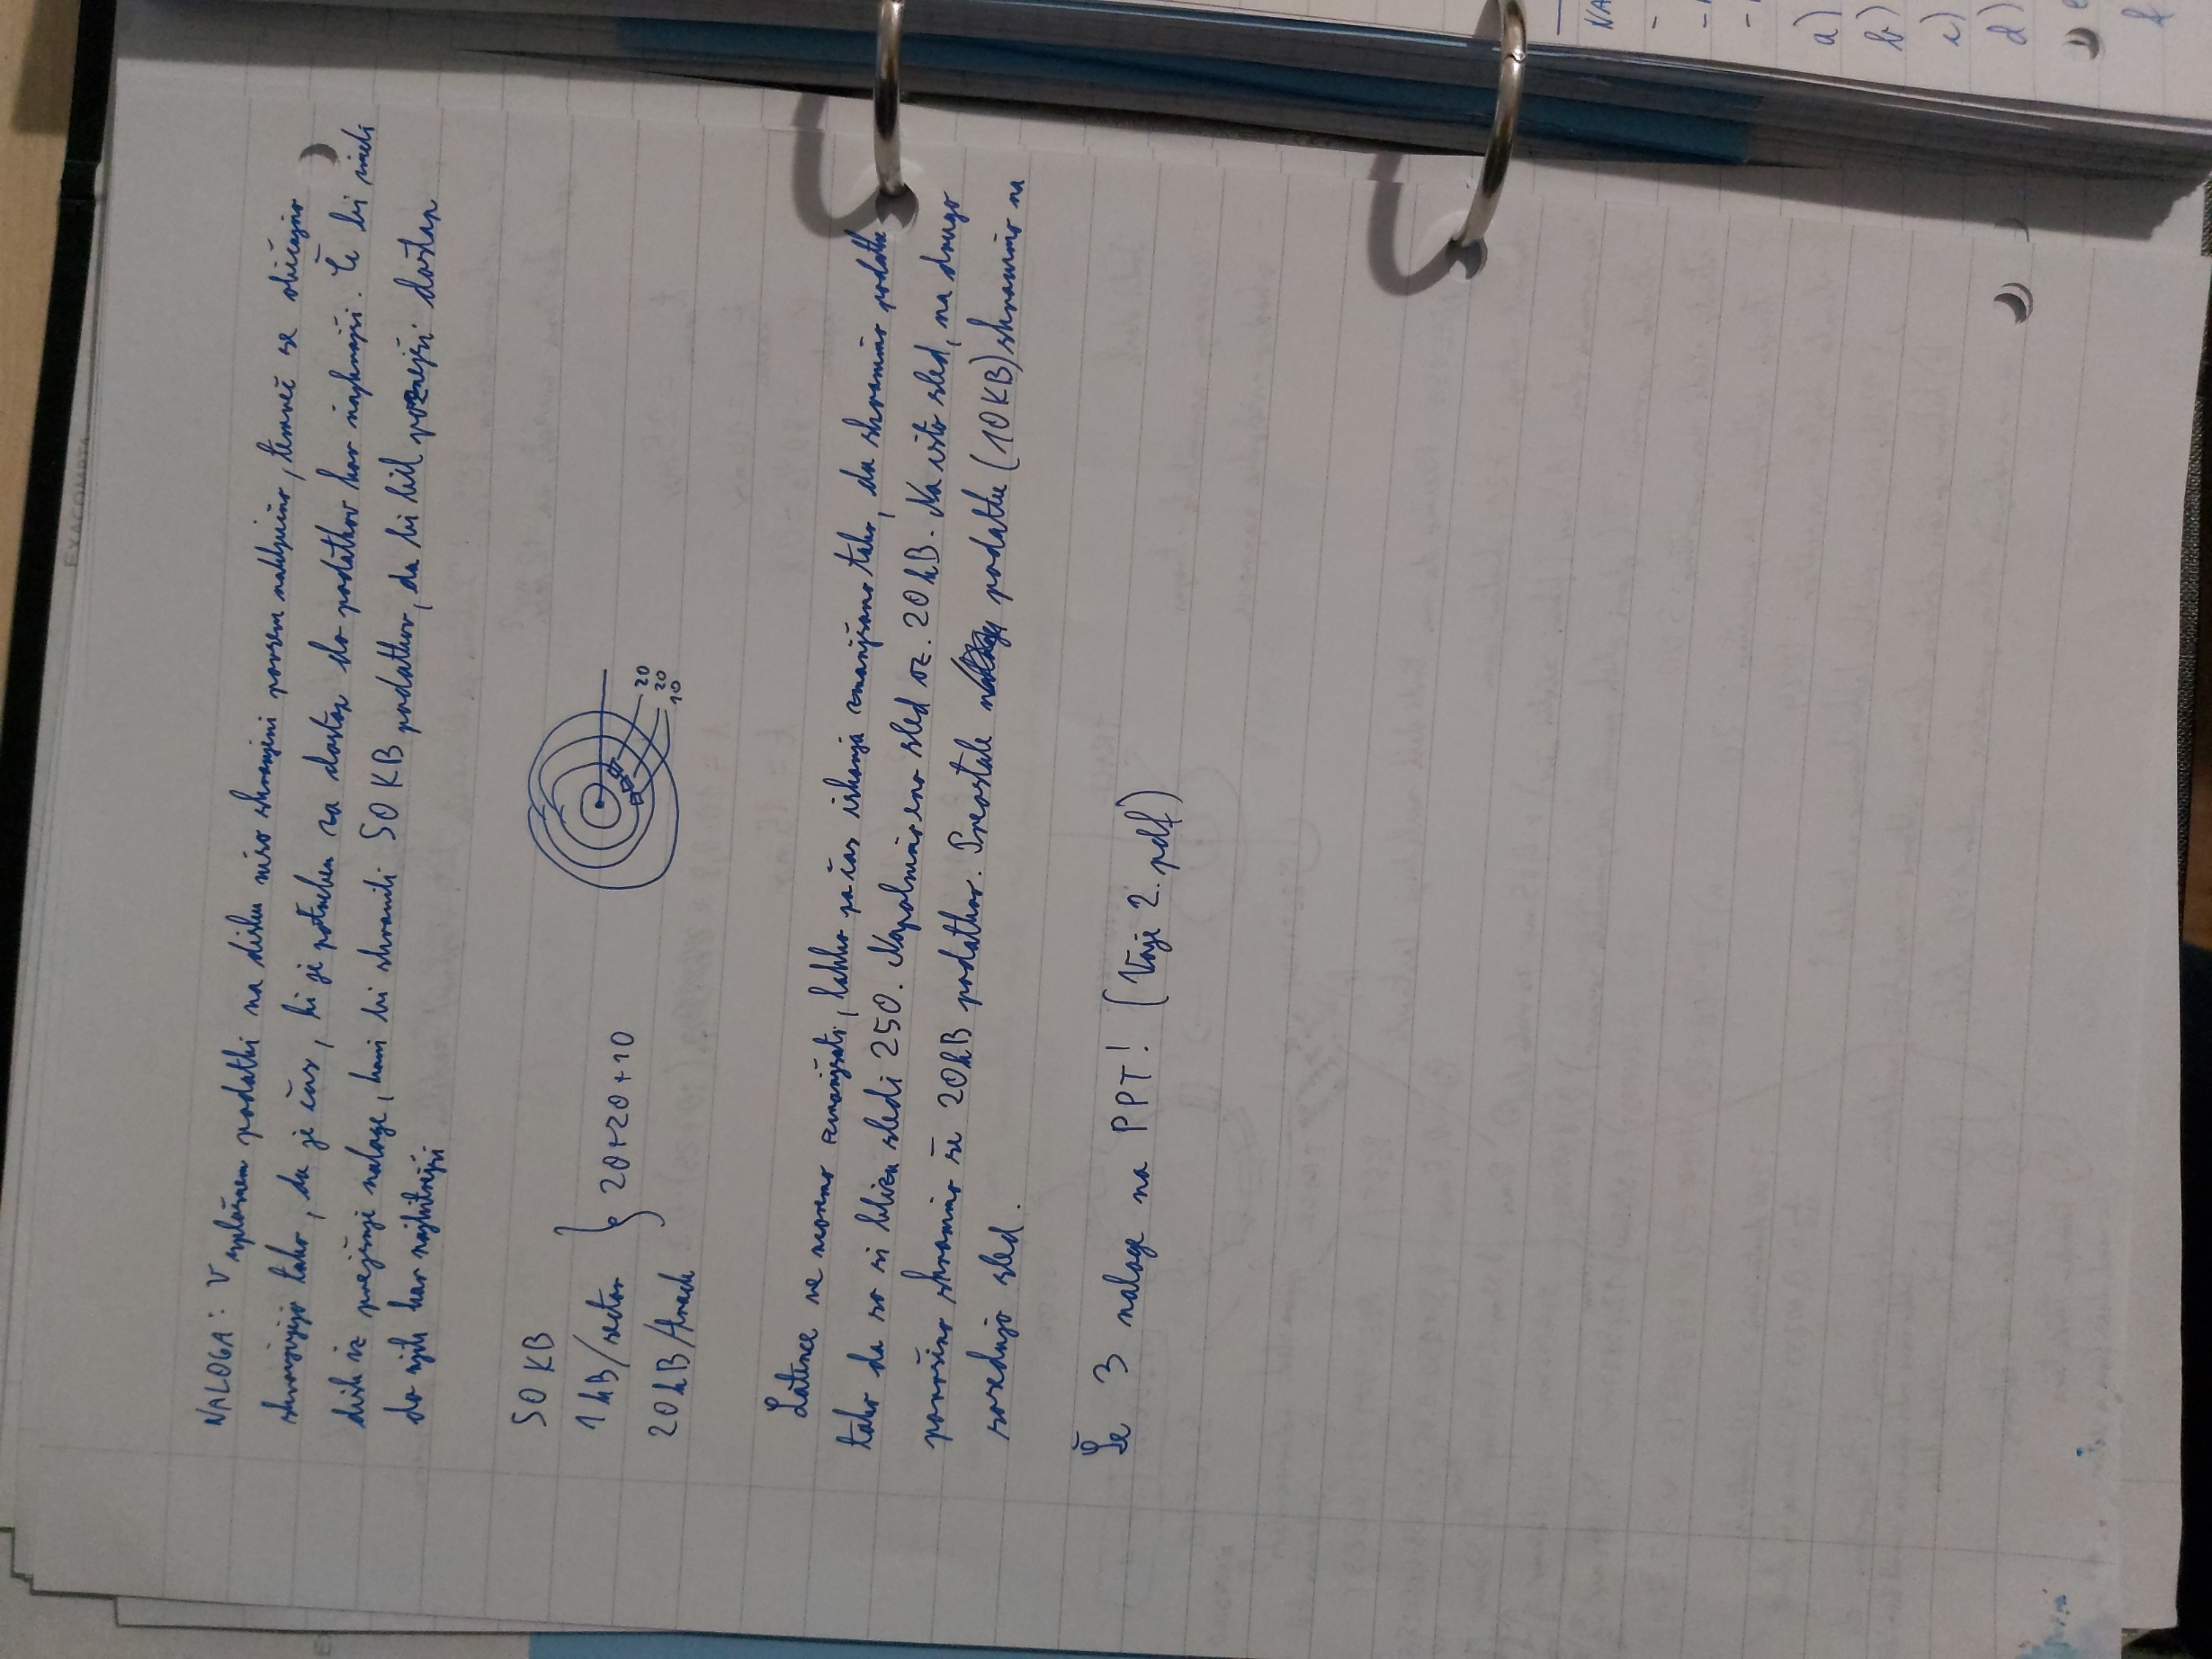 EXACOMPTA
NALOGA: V splošnem podatki na disku niso shranjeni povsem naključno, temveč se običajno
shranjujejo tako, da je čas, ki je potreben za dostop do podatkov kar najkrajši. Če bi imeli
disk iz prejšnje naloge, kam bi shranili 50 KB podatkov, da bi bil poznejši dostop
do njih kar najhitrejši
50 KB
1 kB/sector
20 kB/track
20+20+10
20
20
10
Latence ne moremo zmanjšati, lahko pa čas iskanja zmanjšamo tako, da shranimo podatke
tako da so si blizu sledi 250. Napolnimo eno sled oz. 20 kB. Na isto sled, na drugo
površino shranimo še 20kB podatkov. Preostale podatke (10 KB) shranimo na
sosednjo sled.
Še 3 naloge na PPT! (Vaje 2. pdf)
NA
a)
b)
c)
d)